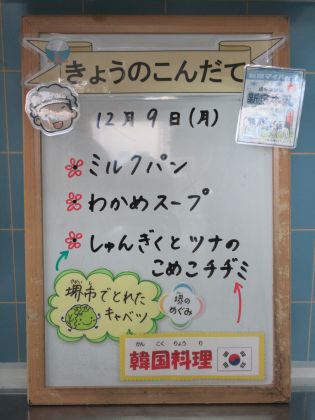 きょうのこんだて
12月9日(月)
ミルクパン
わかめスープ
しゅんぎくとツナの
こめこチヂミ
堺市でとれた
キャベツ
堺の
めぐみ
かん こく りょう り
韓国料理